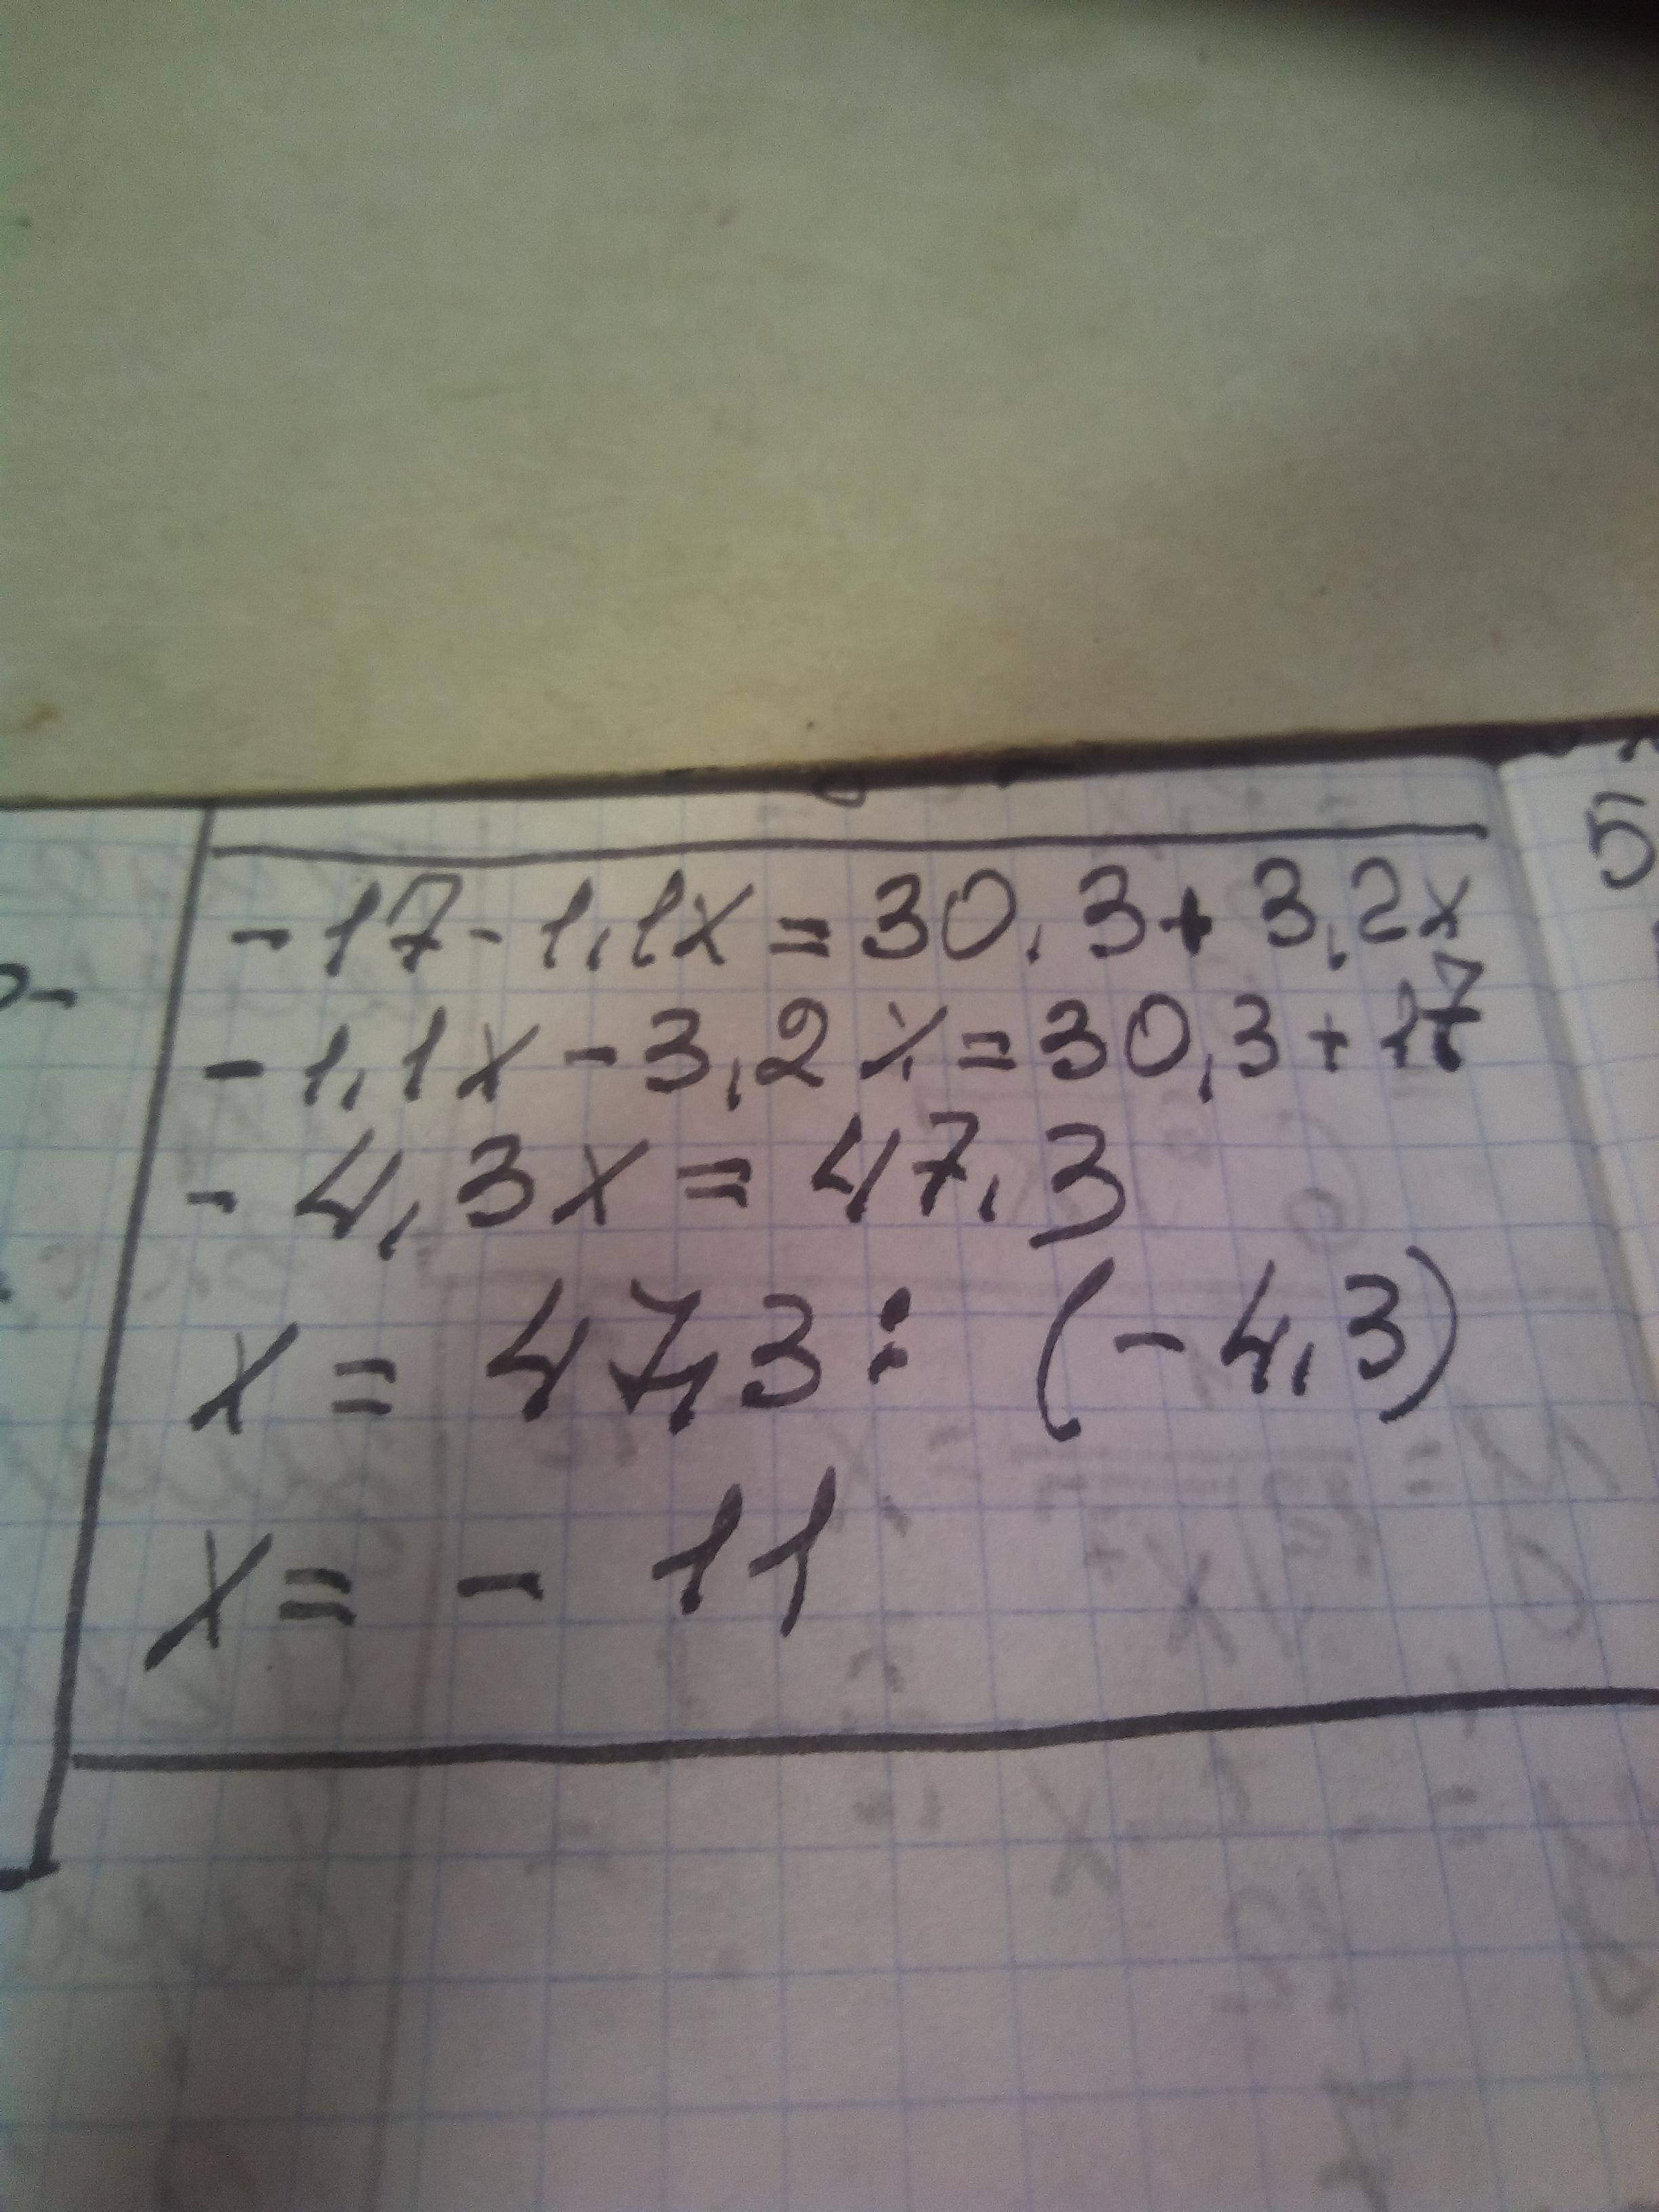 -17-1,1x=30,3+3,2x
-1,1x-3,2x=30,3+17
-4,3x=47,3
x=47,3:(-4,3)
x=-11
5